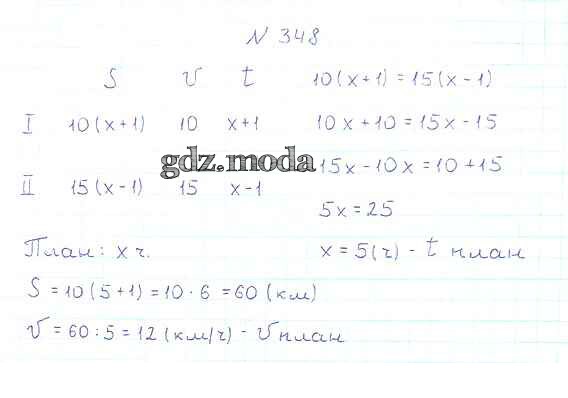 N 348
S V t 10(x+1) = 15(x-1)
I 10(x+1) 10 x+1 10x+10 = 15x-15
gdz.moda
15x-10x = 10+15
II 15(x-1) 15 x-1
5x = 25
План: x ч. x = 5(ч) - t план
S = 10(5+1) = 10 · 6 = 60 (км)
V = 60 : 5 = 12 (км/ч) - V план